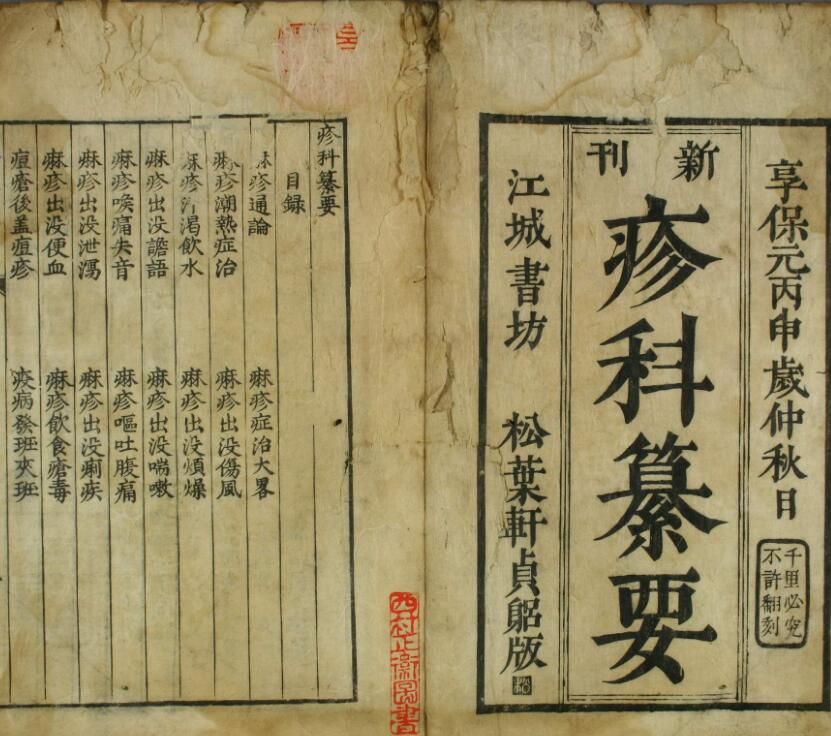 享保元丙申歲仲秋日
千里必究
不許翻刻
新刊
疹科纂要
江城書坊 松葉軒貞躬版
疹科纂要
目錄
麻疹通論 麻疹症治大畧
麻疹潮熱症治 麻疹出没傷風
麻疹渴飲水 麻疹出没煩燥
麻疹出没譫語 麻疹出没喘嗽
麻疹喉痛失音 麻疹嘔吐腹痛
麻疹出没泄瀉 麻疹出没痢疾
麻疹出没便血 麻疹飲食瘡毒
痘瘡後盖痘疹 疫病發班夾班